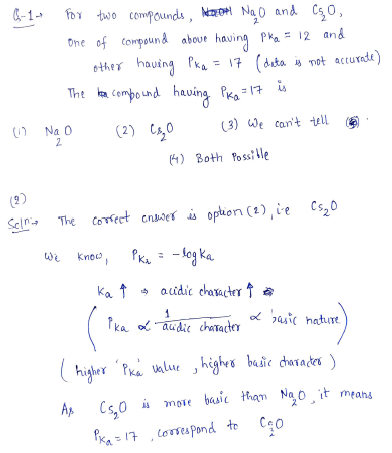 Q-1→ For two compounds, Na₂O and Cs₂O,
One of compound above having pka = 12 and
other having Pka = 17 (data is not accurate)
The compound having Pka=17 is
(1) Na₂O (2) Cs₂O (3) We can't tell
(4) Both Possible
(2)
Soln:→ The correct answer is option (2), i.e Cs₂O
We know, Pka = -log ka
Ka ↑ ⇒ acidic character ↑
(Pka ∝ 1/acidic character ∝ basic nature)
(higher 'Pka' value, higher basic character)
As Cs₂O is more basic than Na₂O, it means
Pka = 17, correspond to Cs₂O